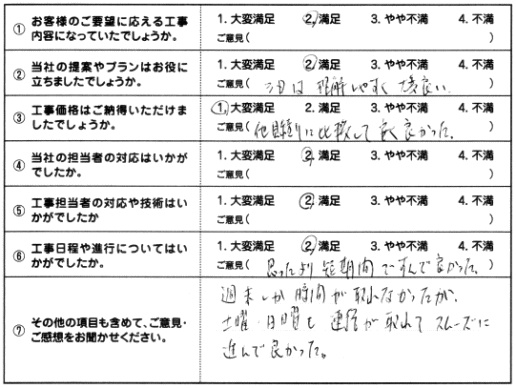 ① お客様のご要望に応える工事内容になっていたでしょうか。
1. 大変満足 2. 満足 3. やや不満 4. 不満
ご意見( )
② 当社の提案やプランはお役に立ちましたでしょうか。
1. 大変満足 2. 満足 3. やや不満 4. 不満
ご意見( は 理解しやすく 大変良い
③ 工事価格はご納得いただけましたでしょうか。
1. 大変満足 2. 満足 3. やや不満 4. 不満
ご意見( 他 に比較して 良かった。
④ 当社の担当者の対応はいかがでしたか。
1. 大変満足 2. 満足 3. やや不満 4. 不満
ご意見( )
⑤ 工事担当者の対応や技術はいかがでしたか
1. 大変満足 2. 満足 3. やや不満 4. 不満
ご意見( )
⑥ 工事日程や進行についてはいかがでしたか。
1. 大変満足 2. 満足 3. やや不満 4. 不満
ご意見( 思ったより短期間ですんで良かった。)
⑦ その他の項目も含めて、ご意見・ご感想をお聞かせください。
週末しか時間が取れなかったが、
土曜・日曜も連絡が取れてスムーズに
進んで良かった。